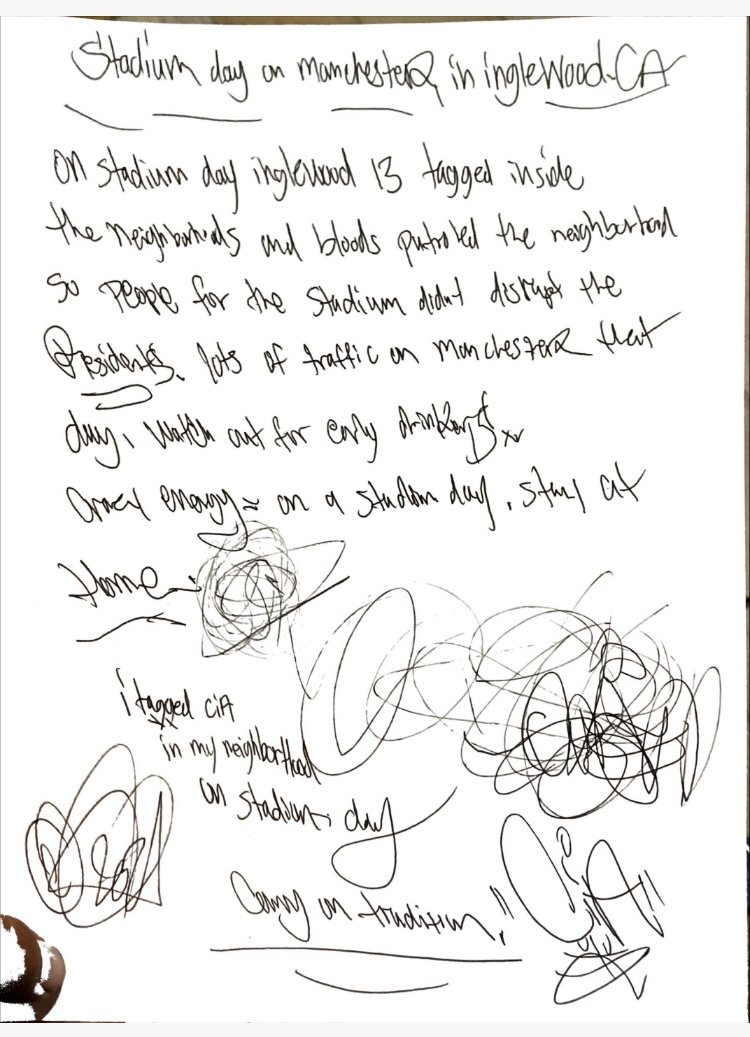 Stadium day on manchester in inglewood-CA
on stadium day inglewood 13 tagged inside
the neighborhoods and bloods patroled the neighborhood
so people for the stadium didnt disrupt the
Residents. lots of traffic on manchester that
day, watch out for early drinkers
energy on a stadium day. stay at
Home
i tagged CiA
in my neighborhood
on stadium day
Carry on tradition!!
CiA"